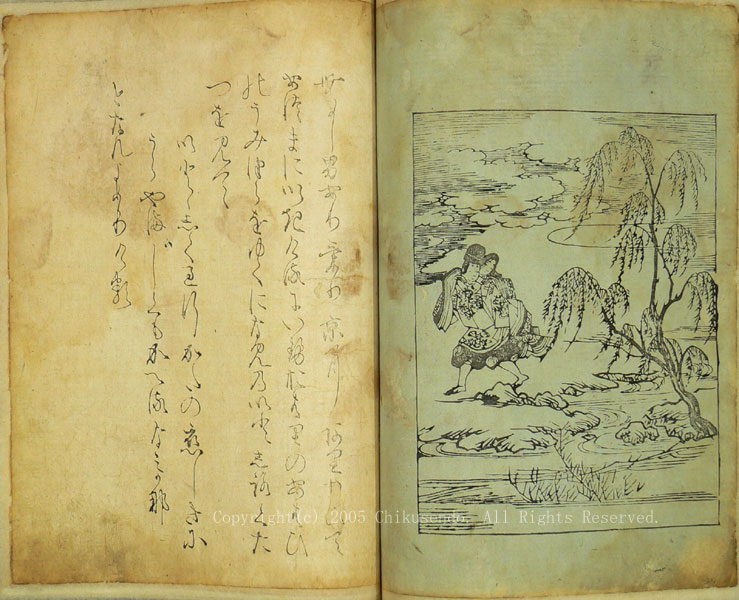 むかし男ありけり京にありわひて
あつまにいきけるにいせおはりのあはひ
のうみつらをゆくになみのいとしろくた
つを見て
いとゝしく過行かたの恋しきに
うらやましくもかへるなみかな
となんよめりける
Copyright (c) 2005 Chikusendo. All Rights Reserved.